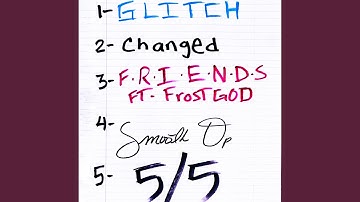 1- GLITCH
2- Changed
3- F.R.I.E.N.D.S
FT- FrostGOD
4- Smooth Op
5- 5/5